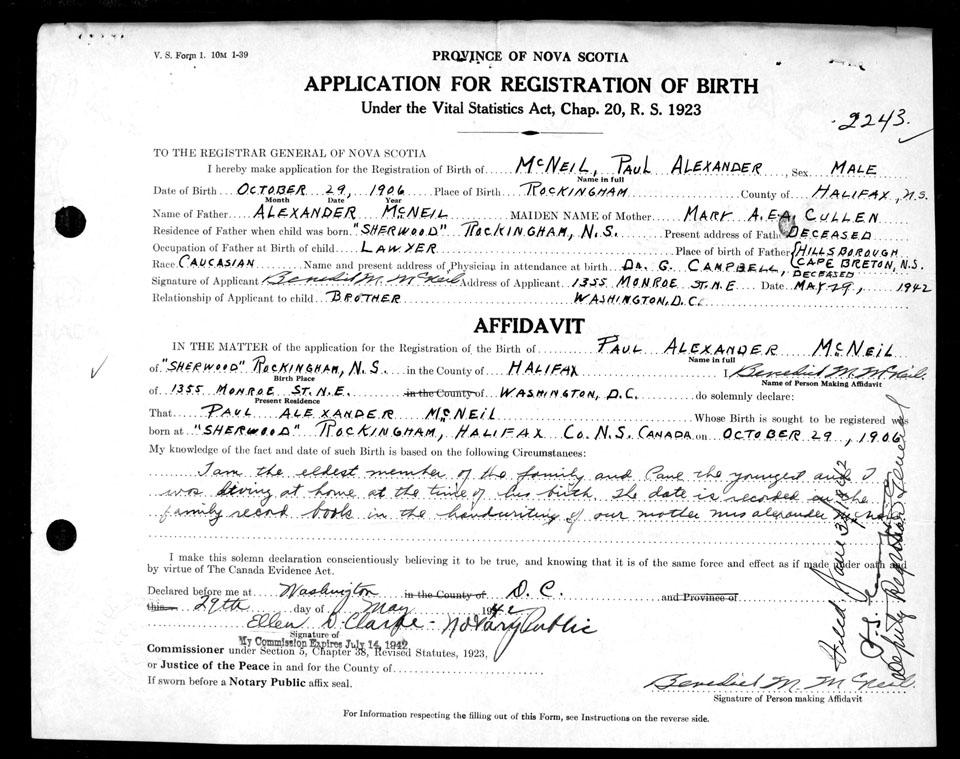 V. S. Form 1. 10M 1-39
PROVINCE OF NOVA SCOTIA
APPLICATION FOR REGISTRATION OF BIRTH
Under the Vital Statistics Act, Chap. 20, R. S. 1923
2243.
TO THE REGISTRAR GENERAL OF NOVA SCOTIA
I hereby make application for the Registration of Birth of McNEIL, PAUL ALEXANDER Sex MALE
Name in full
Date of Birth OCTOBER 29, 1906 Place of Birth ROCKINGHAM County of HALIFAX, N.S.
Month Date Year
Name of Father ALEXANDER McNEIL MAIDEN NAME of Mother MARY A. E. CULLEN
Residence of Father when child was born "SHERWOOD" ROCKINGHAM, N.S. Present address of Father DECEASED
Occupation of Father at Birth of child LAWYER Place of birth of Father HILLSBOROUGH
CAPE BRETON, N.S.
Race CAUCASIAN Name and present address of Physician in attendance at birth DR. G. CAMPBELL, DECEASED
Signature of Applicant Benedict M. McNeil Address of Applicant 1355 MONROE ST. N.E Date MAY 29, 1942
Relationship of Applicant to child BROTHER WASHINGTON, D.C.
AFFIDAVIT
IN THE MATTER of the application for the Registration of the Birth of PAUL ALEXANDER McNEIL
Name in full
of "SHERWOOD" ROCKINGHAM, N.S. in the County of HALIFAX I Benedict M. McNeil
Birth Place Name of Person Making Affidavit
of 1355 MONROE ST. N.E. in the County of WASHINGTON, D.C. do solemnly declare:
Present Residence
That PAUL ALEXANDER McNEIL Whose Birth is sought to be registered was
born at "SHERWOOD" ROCKINGHAM, HALIFAX CO. N.S. CANADA on OCTOBER 29, 1906
My knowledge of the fact and date of such Birth is based on the following Circumstances:
I am the eldest member of the family and Paul the youngest and I
was living at home at the time of his birth. The date is recorded in the
family record book in the handwriting of our mother Mrs Alexander McNeil
I make this solemn declaration conscientiously believing it to be true, and knowing that it is of the same force and effect as if made under oath and
by virtue of The Canada Evidence Act.
Declared before me at Washington in the County of D. C. and Province of
this 29th day of May 1942
Ellen D. Clarke - Notary Public
Signature of
My Commission Expires July 14, 1942
Commissioner under Section 5, Chapter 38, Revised Statutes, 1923,
or Justice of the Peace in and for the County of
If sworn before a Notary Public affix seal.
Benedict M. McNeil
Signature of Person making Affidavit
For Information respecting the filling out of this Form, see Instructions on the reverse side.
Filed June 3, 1942
Deputy Registrar General